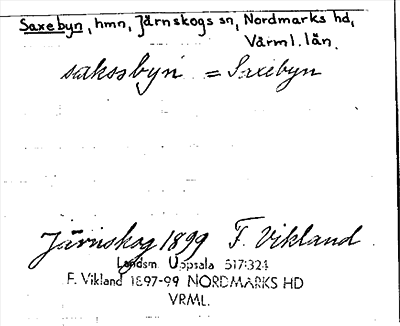 Saxebyn, hmn, Järnskogs sn, Nordmarks hd,
Värml. län.
saksabyn = Saxebyn
Järnskog 1899 F. Vikland
Landsm. Uppsala 517:324
F. Vikland 1897-99 NORDMARKS HD
VRML.